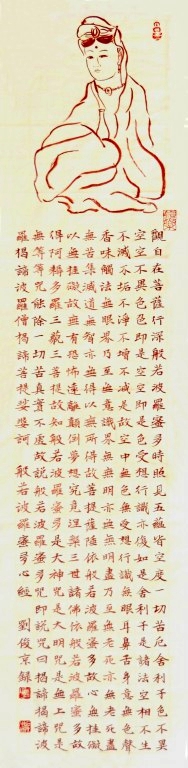 觀自在菩薩行深般若波羅蜜多時照見五蘊皆空度一切苦厄舍利子色不異
空空不異色色即是空空即是色受想行識亦復如是舍利子是諸法空相不生
不滅不垢不淨不增不減是故空中無色無受想行識無眼耳鼻舌身意無色聲
香味觸法無眼界乃至無意識界無無明亦無無明盡乃至無老死亦無老死盡
無苦集滅道無智亦無得以無所得故菩提薩埵依般若波羅蜜多故心無挂礙
以無挂礙故無有恐怖遠離顛倒夢想究竟涅槃三世諸佛依般若波羅蜜多故
得阿耨多羅三藐三菩提故知般若波羅蜜多是大神咒是大明咒是無上咒是
無等等咒能除一切苦真實不虛故說般若波羅蜜多咒即說咒曰揭諦揭諦波
羅揭諦波羅僧揭諦菩提娑婆訶 般若波羅蜜多心經 劉俊京錄